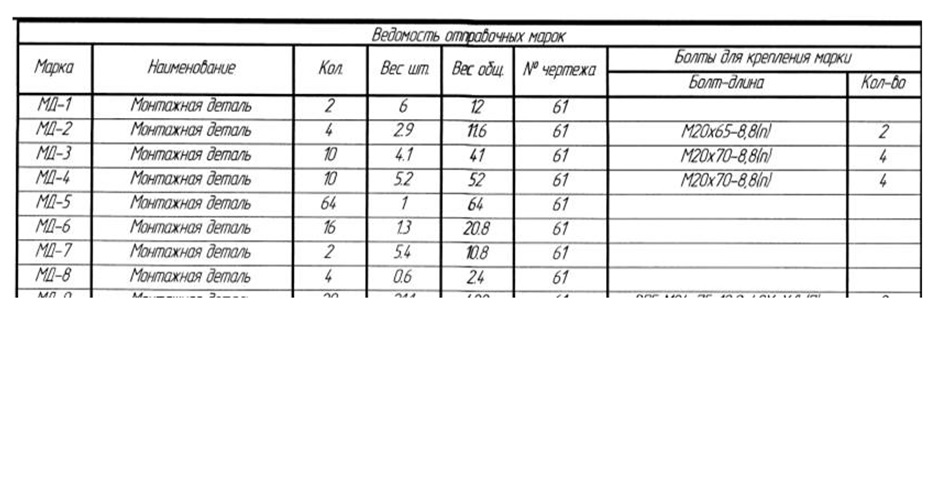 Ведомость отправочных марок
Марка Наименование Кол. Вес шт. Вес общ. № чертежа Болты для крепления марки
Болт-длина Кол-во
МД-1 Монтажная деталь 2 6 12 61
МД-2 Монтажная деталь 4 2.9 11.6 61 М20х65-8,8(п) 2
МД-3 Монтажная деталь 10 4.1 41 61 М20х70-8,8(п) 4
МД-4 Монтажная деталь 10 5.2 52 61 М20х70-8,8(п) 4
МД-5 Монтажная деталь 64 1 64 61
МД-6 Монтажная деталь 16 1.3 20.8 61
МД-7 Монтажная деталь 2 5.4 10.8 61
МД-8 Монтажная деталь 4 0.6 2.4 61